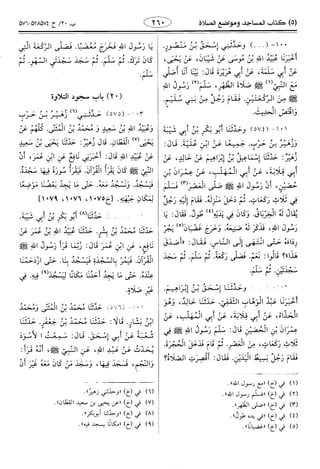 (٥) كتاب المساجد ومواضع الصلاة
٢٦٠
باب ٢٠/ ح ٥٧٤-٥٧٦
١٠٠- (...) وحَدَّثَنِي إِسْحٰقُ بْنُ مَنْصُورٍ.
أَخْبَرَنَا عُبَيْدُ اللهِ بْنُ مُوسَى عَنْ شَيْبَانَ، عَنْ يَحْيَى،
عَنْ أَبِي سَلَمَةَ، عَنْ أَبِي هُرَيْرَةَ قَالَ: بَيْنَا أَنَا أُصَلِّي
مَعَ النَّبِيِّ ﷺ صَلَاةَ الظُّهْرِ، سَلَّمَ رَسُولُ اللهِ
ﷺ مِنَ الرَّكْعَتَيْنِ. فَقَامَ رَجُلٌ مِنْ بَنِي سُلَيْمٍ.
وَاقْتَصَّ الْحَدِيثَ.
١٠١- (٥٧٤) حَدَّثَنَا أَبُو بَكْرِ بْنُ أَبِي شَيْبَةَ
وَزُهَيْرُ بْنُ حَرْبٍ. جَمِيعًا عَنِ ابْنِ عُلَيَّةَ. قَالَ:
زُهَيْرٌ: حَدَّثَنَا إِسْمَاعِيلُ بْنُ إِبْرَاهِيمَ عَنْ خَالِدٍ، عَنْ
أَبِي قِلَابَةَ، عَنْ أَبِي الْمُهَلَّبِ، عَنْ عِمْرَانَ بْنِ
حُصَيْنٍ، أَنَّ رَسُولَ اللهِ ﷺ صَلَّى الْعَصْرَ فَسَلَّمَ
فِي ثَلَاثِ رَكَعَاتٍ. ثُمَّ دَخَلَ مَنْزِلَهُ. فَقَامَ إِلَيْهِ رَجُلٌ
يُقَالُ لَهُ الْخِرْبَاقُ. وَكَانَ فِي يَدَيْهِ طُولٌ. فَقَالَ: يَا
رَسُولَ اللهِ، فَذَكَرَ لَهُ صَنِيعَهُ. وَخَرَجَ غَضْبَانَ يَجُرُّ
رِدَاءَهُ حَتَّى انْتَهَى إِلَى النَّاسِ. فَقَالَ: «أَصَدَقَ
هٰذَا؟» قَالُوا: نَعَمْ. فَصَلَّى رَكْعَةً. ثُمَّ سَلَّمَ. ثُمَّ سَجَدَ
سَجْدَتَيْنِ. ثُمَّ سَلَّمَ.
١٠٢- (...) وحَدَّثَنَا إِسْحٰقُ بْنُ إِبْرَاهِيمَ:
أَخْبَرَنَا عَبْدُ الْوَهَّابِ الثَّقَفِيُّ: حَدَّثَنَا خَالِدٌ، وَهُوَ
الْحَذَّاءُ، عَنْ أَبِي قِلَابَةَ، عَنْ أَبِي الْمُهَلَّبِ، عَنْ
عِمْرَانَ بْنِ الْحُصَيْنِ قَالَ: سَلَّمَ رَسُولُ اللهِ ﷺ فِي
ثَلَاثِ رَكَعَاتٍ، مِنَ الْعَصْرِ. ثُمَّ قَامَ فَدَخَلَ الْحُجْرَةَ.
فَقَامَ رَجُلٌ بَسِيطُ الْيَدَيْنِ. فَقَالَ: أَقُصِرَتِ الصَّلَاةُ؟
يَا رَسُولَ اللهِ فَخَرَجَ مُغْضَبًا. فَصَلَّى الرَّكْعَةَ الَّتِي
كَانَ تَرَكَ. ثُمَّ سَلَّمَ. ثُمَّ سَجَدَ سَجْدَتَيِ السَّهْوِ. ثُمَّ
سَلَّمَ.
(٢٠) باب سجود التلاوة
١٠٣- (٥٧٥) حَدَّثَنِي زُهَيْرُ بْنُ حَرْبٍ
وَعُبَيْدُ اللهِ بْنُ سَعِيدٍ وَ مُحَمَّدُ بْنُ الْمُثَنَّى. كُلُّهُمْ عَنْ
يَحْيَى الْقَطَّانِ. قَالَ زُهَيْرٌ: حَدَّثَنَا يَحْيَى بْنُ سَعِيدٍ
عَنْ عُبَيْدِ اللهِ قَالَ: أَخْبَرَنِي نَافِعٌ عَنِ ابْنِ عُمَرَ، أَنَّ
النَّبِيَّ ﷺ كَانَ يَقْرَأُ الْقُرْآنَ. فَيَقْرَأُ سُورَةً فِيهَا سَجْدَةٌ.
فَيَسْجُدُ. وَنَسْجُدُ مَعَهُ. حَتَّى مَا يَجِدُ بَعْضُنَا مَوْضِعًا
لِمَكَانِ جَبْهَتِهِ. [خ:١٠٧٥، ١٠٧٦، ١٠٧٩]
١٠٤- (...) حَدَّثَنَا أَبُو بَكْرِ بْنُ أَبِي شَيْبَةَ.
حَدَّثَنَا مُحَمَّدُ بْنُ بِشْرٍ. حَدَّثَنَا عُبَيْدُ اللهِ بْنُ عُمَرَ عَنْ
نَافِعٍ، عَنِ ابْنِ عُمَرَ قَالَ: رُبَّمَا قَرَأَ رَسُولُ اللهِ ﷺ
الْقُرْآنَ. فَيَمُرُّ بِالسَّجْدَةِ فَيَسْجُدُ بِنَا. حَتَّى ازْدَحَمْنَا
عِنْدَهُ. حَتَّى مَا يَجِدُ أَحَدُنَا مَكَانًا لِيَسْجُدَ فِيهِ. فِي
غَيْرِ صَلَاةٍ.
١٠٥- (٥٧٦) حَدَّثَنَا مُحَمَّدُ بْنُ الْمُثَنَّى وَمُحَمَّدُ
ابْنُ بَشَّارٍ. قَالَا: حَدَّثَنَا مُحَمَّدُ بْنُ جَعْفَرٍ. حَدَّثَنَا
شُعْبَةُ عَنْ أَبِي إِسْحٰقَ. قَالَ: سَمِعْتُ الْأَسْوَدَ
يُحَدِّثُ عَنْ عَبْدِ اللهِ، عَنِ النَّبِيِّ ﷺ، أَنَّهُ قَرَأَ:
وَالنَّجْمِ، فَسَجَدَ فِيهَا، وَسَجَدَ مَنْ كَانَ مَعَهُ غَيْرَ أَنَّ
(١) في (خ) «مع رسول الله».
(٢) في (خ) «فسلم رسول الله».
(٣) في (خ) «صلى الظهر».
(٤) في (خ) «في يده طول».
(٥) في (خ) «غضبانًا».
(٦) في (خ) «وحدثني زهير».
(٧) في (خ) «عن يحيى بن سعيد القطان».
(٨) في (خ) «حدثنا أبوبكر».
(٩) في (خ) «مكانًا يسجد فيه».